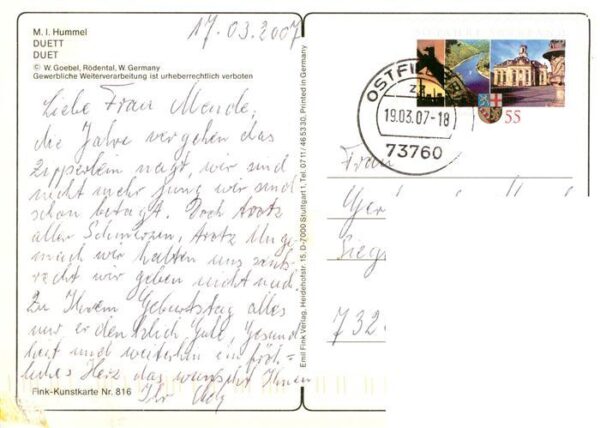 17.03.2007
M. I. Hummel
DUETT
DUET
© W. Goebel, Rödental, W. Germany
Gewerbliche Weiterverarbeitung ist urheberrechtlich verboten
Liebe Frau Mende,
die Jahre vergehen das
Zipperlein nagt, wir sind
nicht mehr jung wir sind
schon betagt. Doch trotz
aller Schmerzen, trotz Unge
mach wir halten uns senk
recht wir geben nicht nach.
Zu Ihrem Geburtstag alles
nur erdenklich Gute, Gesund
heit und weiterhin ein fröh=
liches Herz das wünscht Ihnen
Ihr
Fink-Kunstkarte Nr. 816
Emil Fink Verlag, Heidehofstr. 15, D-7000 Stuttgart 1, Tel. 0711/465330, Printed in Germany
OSTFI
19.03.07-18
73760
55
Frau
Ger
Sieg
732